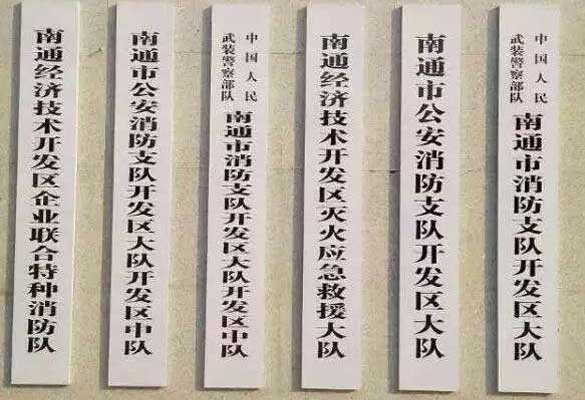 中国人民
武装警察部队
南通市消防支队开发区大队
南通市公安消防支队开发区大队
南通经济技术开发区灭火应急救援大队
中国人民
武装警察部队
南通市消防支队开发区大队开发区中队
南通市公安消防支队开发区大队开发区中队
南通经济技术开发区企业联合特种消防队